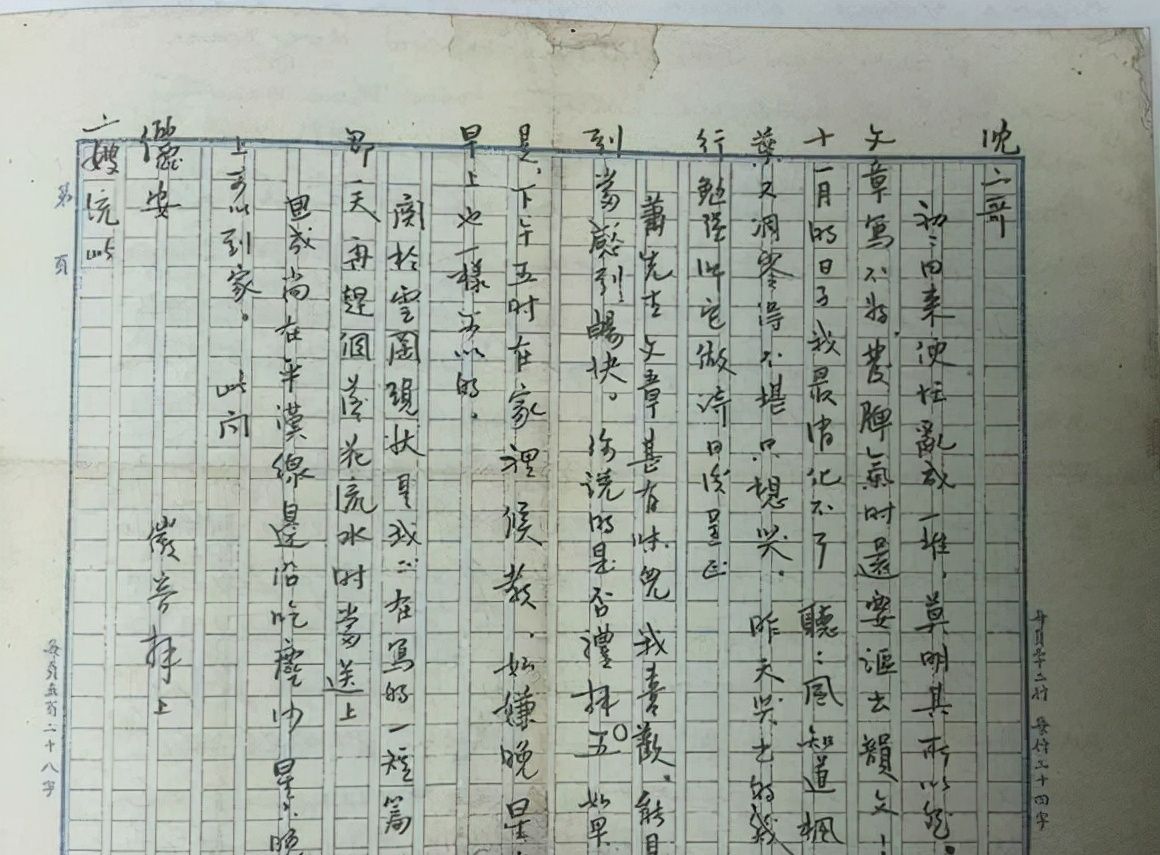 沈二哥
初二回来便忙亂成一堆，莫明其所以然。
文章寫不好，發脾氣时還要漚去韻文！
十一月的日子我最消化不了 聽：風知道楓
葉又凋零得不堪只想哭。昨天哭出的幾
行勉强叫它做诗日後呈正
蕭先生文章甚有味兒我喜歡。能見
到當感到暢快。你说的是否禮拜五 如果
是，下午五时在家裡候教，如嫌晚星
早上也一樣可以的。
関於雲岡現状是我正在寫的一短篇
那一天再趕個落花流水时當送上
思成尚在平漢線邊沿吃塵沙 星六晚
上可以到家。 此问
儷安 徽音拜上
二嫂统此
第 頁
每頁廿二行 每行二十四字
每頁五百二十八字